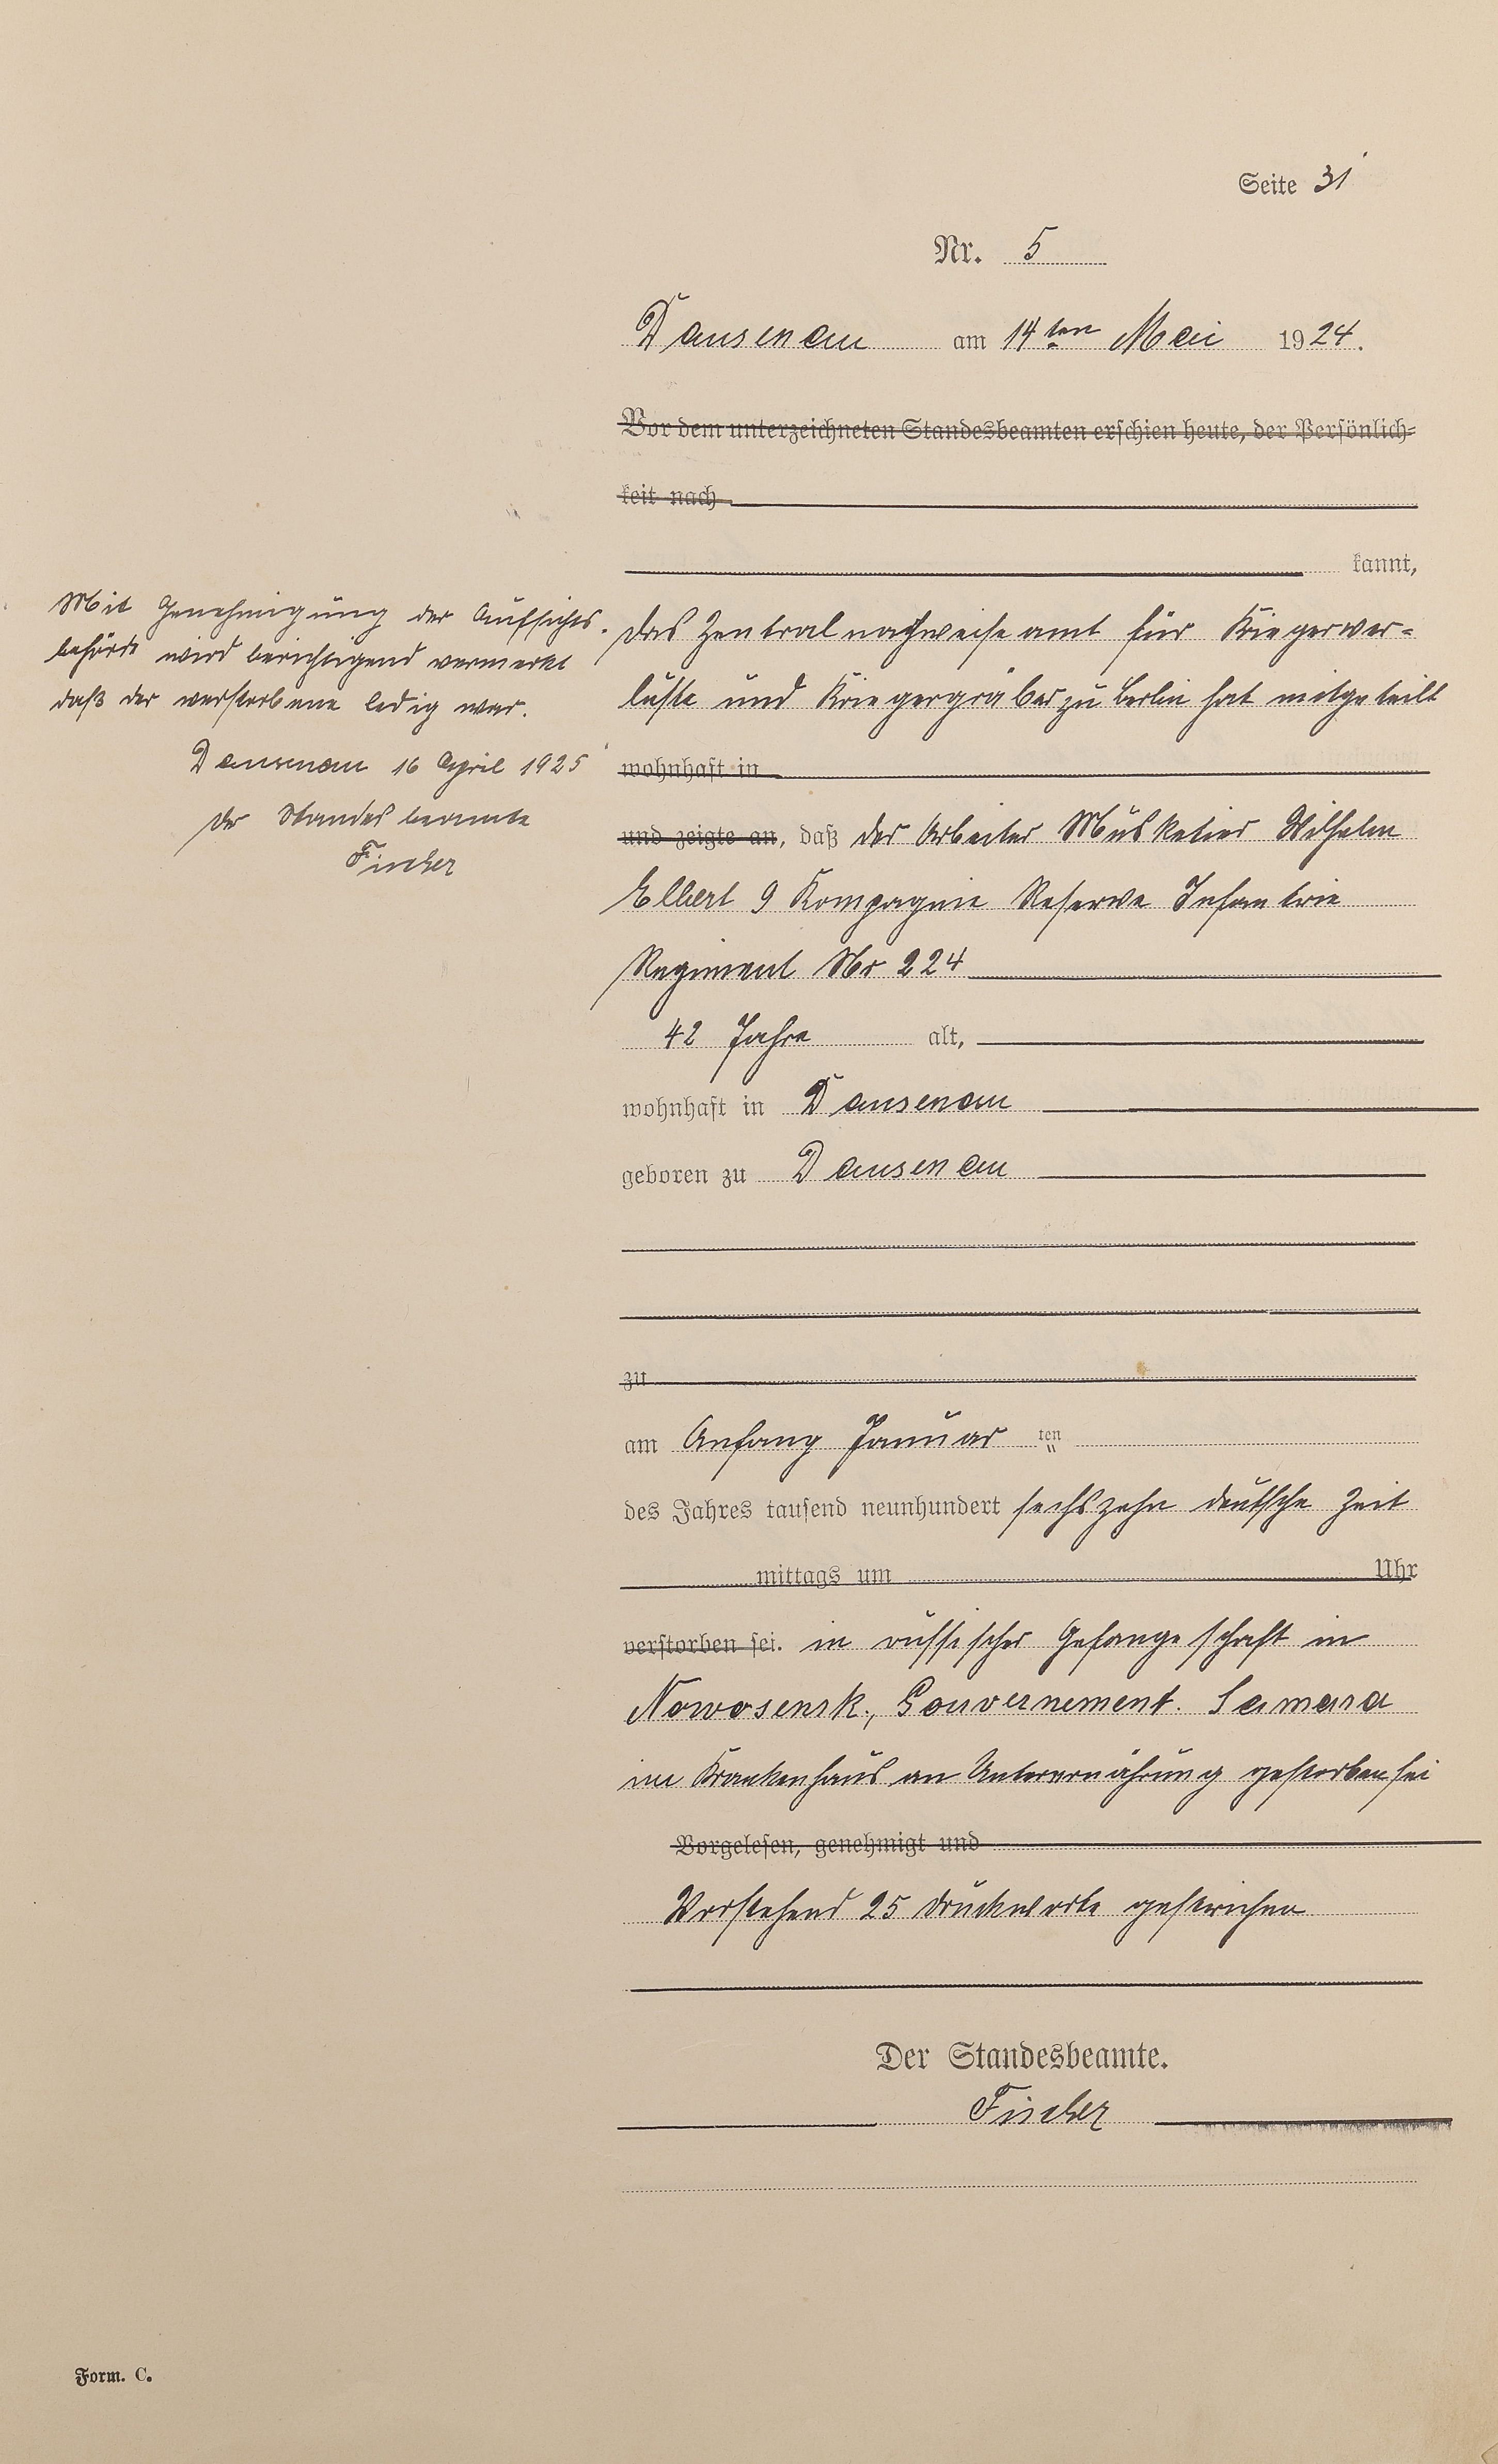 Seite 31
Nr. 5
Dausenau am 14ten Mai 1924.
Vor dem unterzeichneten Standesbeamten erschien heute, der Persönlich-
keit nach
kannt,
das Zentralnachweiseamt für Kriegerver-
luste und Kriegergräber zu Berlin hat mitgeteilt
wohnhaft in
und zeigte an, daß der Arbeiter Musketier Wilhelm
Elbert 9 Kompagnie Reserve Infantrie
Regiment Nr 224
42 Jahre alt,
wohnhaft in Dausenau
geboren zu Dausenau
zu
am Anfang Januar ten
des Jahres tausend neunhundert sechszehn deutsche Zeit
mittags um Uhr
verstorben sei. in russischer Gefangeschaft in
Nowosensk., Gouvernement. Samara
im Krankenhaus an Unterernährung gestorben sei
Vorgelesen, genehmigt und
Vorstehend 25 Druckworte gestrichen
Der Standesbeamte.
Fischer
Mit Genehmigung der Aufsichts-
behörde wird berichtigend vermerkt
daß der verstorbene ledig war.
Dausenau 16 April 1925
Der Standesbeamte
Fischer
Form. C.